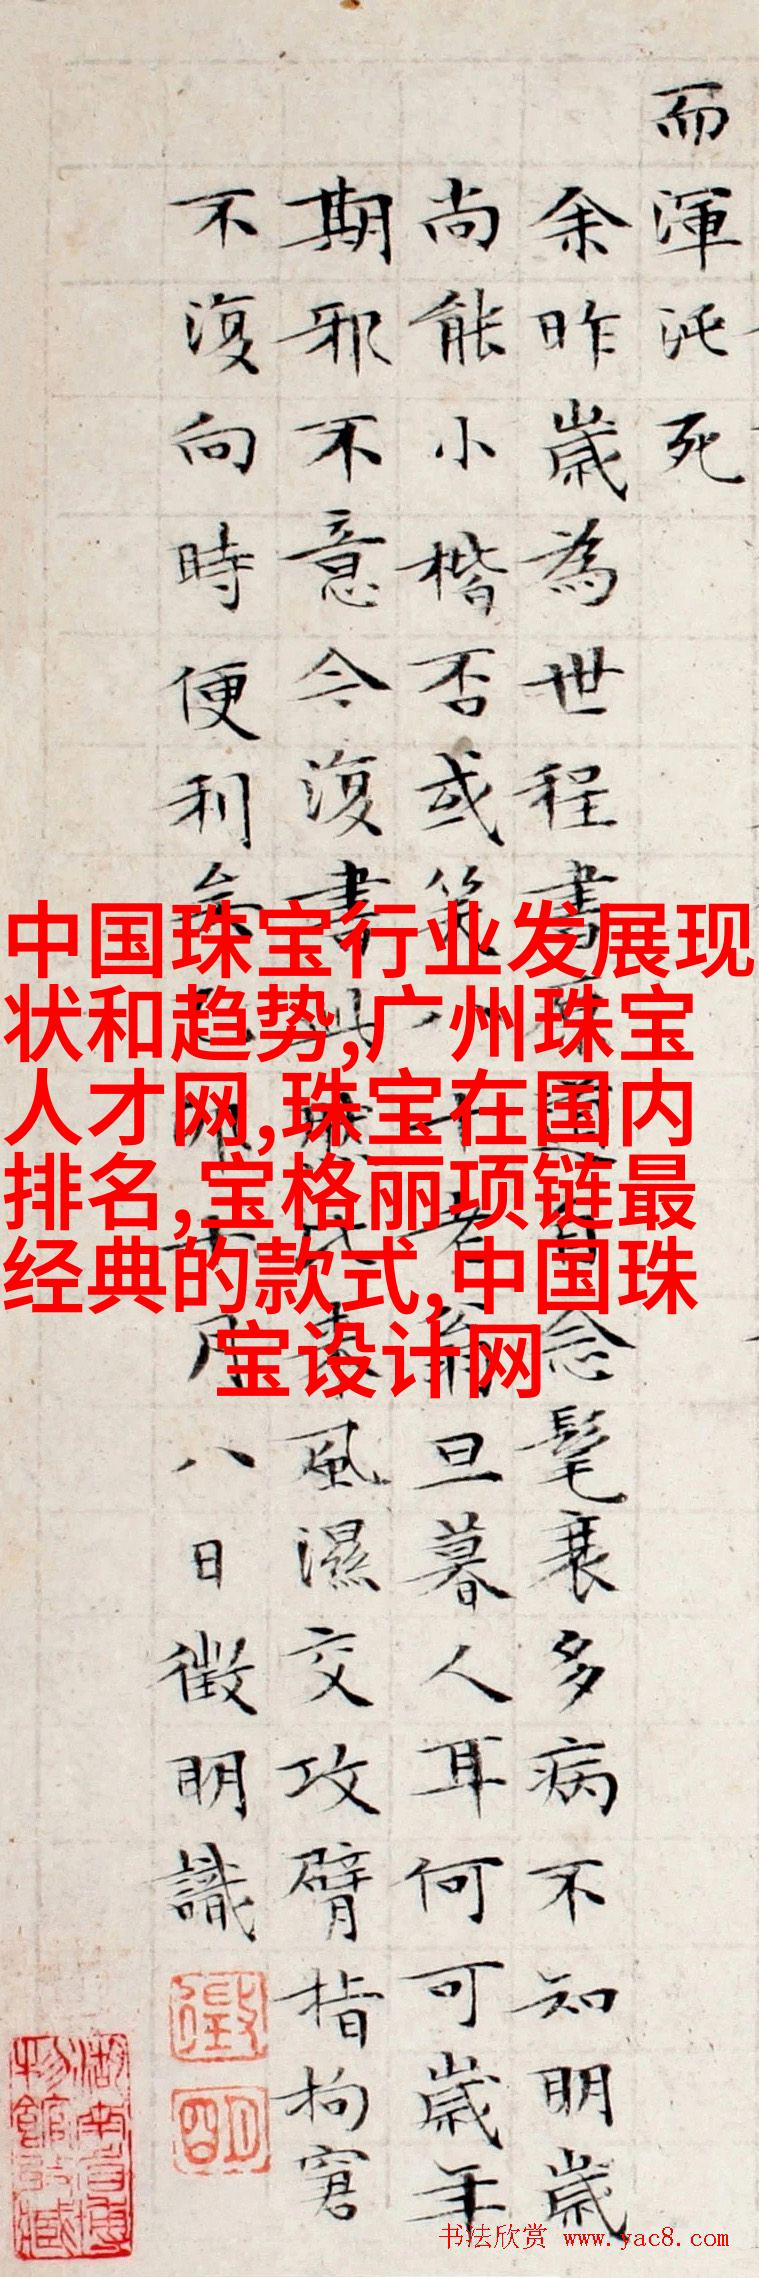 而渾沌死
余昨歲為世程書念髦衰多病不知明歲
尚能小楷否或笑八十老翁旦暮人耳何可歲年
期邪不意今復書此然來風濕交攻臂指拘窘
不復向時便利矣月八日徵明識
中国珠宝行业发展现
状和趋势,广州珠宝
人才网,珠宝在国内
排名,宝格丽项链最
经典的款式,中国珠
宝设计网
书法欣赏 www.yac8.com